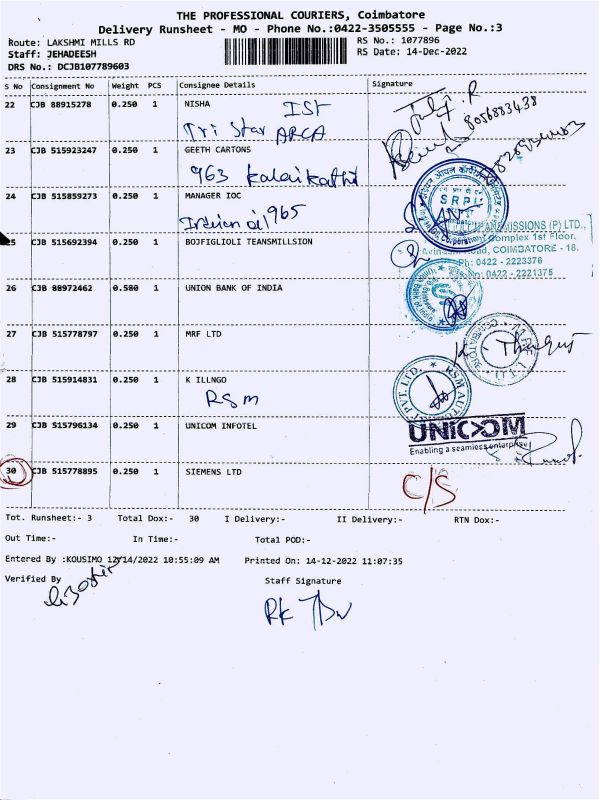 THE PROFESSIONAL COURIERS, Coimbatore
Delivery Runsheet - MO - Phone No.:0422-3505555 - Page No.:3
Route: LAKSHMI MILLS RD
RS No.: 1077896
Staff: JEHADEESH
RS Date: 14-Dec-2022
DRS No.: DCJB107789603
S No Consignment No Weight PCS Consignee Details Signature
22 CJB 88915278 0.250 1 NISHA IST
Tri Star ARCA
8056883438
23 CJB 515923247 0.250 1 GEETH CARTONS
963 Kalaikathi
24 CJB 515859273 0.250 1 MANAGER IOC
Indian oil 965
SRPL
25 CJB 515692394 0.250 1 BOJFIGLIOLI TEANSMILLSION
TRANSMISSIONS (P) LTD.,
Complex 1st Floor,
Road, COIMBATORE - 18.
Ph: 0422 - 2223376
0422 - 2221375
26 CJB 88972462 0.500 1 UNION BANK OF INDIA
27 CJB 515778797 0.250 1 MRF LTD
28 CJB 515914831 0.250 1 K ILLNGO
RSM
PVT. LTD. ★ RSM AUTO
29 CJB 515796134 0.250 1 UNICOM INFOTEL
UNICOM
Enabling a seamless enterprise
30 CJB 515778895 0.250 1 SIEMENS LTD
C/S
Tot. Runsheet:- 3 Total Dox:- 30 I Delivery:- II Delivery:- RTN Dox:-
Out Time:- In Time:- Total POD:-
Entered By :KOUSIMO 12/14/2022 10:55:09 AM Printed On: 14-12-2022 11:07:35
Verified By Staff Signature